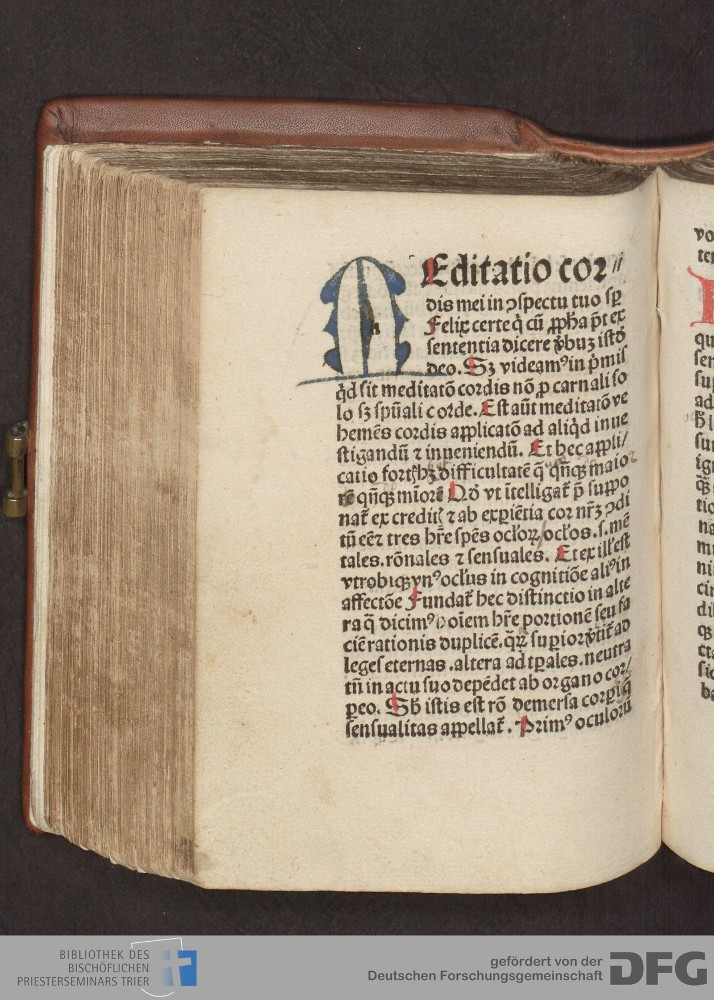 MEditatio cor//
dis mei in ɔspectu tuo sꝑ
Felix certe q̇ cū ꝓpħa p̄t ex
sententia dicere v̄buꝫ istđ
deo. Sꝫ videamꝰ in p̄mis
q̇d sit meditatō cordis nō ꝑ carnali so
lo sꝫ spūali corde. Est aūt meditatō ve
hemēs cordis applicatō ad aliq̇d inue
stigandū ⁊ inueniendū. Et hec appli/
catio difficultatē q̄ qn̄qꝫ maio
rē qn̄qꝫ mīorē vt ītelligat̄ p̄ suppo
nat̄ ex ⁊ ab exꝑiētia cor nr̄ꝫ ɔdi
tū eē tres hr̄e spēs ocl'oꝝ/ocl'os.s.mē
tales.rōnales ⁊ sensuales. Et ex ill' est
vtrobiqꝫ vnꝰ ocl'us in cognitiōe aliꝰ in
affectōe Fundat̄ hec distinctio in alte
ra q̄ dicimꝰ hoīem hr̄e portionē seu fa
ciē rationis duplicē. suꝑior v̄tit̄ ad
leges eternas.altera ad tꝑales.neutra
tn̄ in actu suo depēdet ab organo cor/
ꝑeo. Sb̄ istis est rō demersa corꝑi q̄
sensualitas appellat̄. Primꝰ oculorū
vo
ter
qu
sen
su
ad
su
ig
tio
na
m
ni
cir
di
qꝫ
cta
sic
ba
BIBLIOTHEK DES
BISCHÖFLICHEN
PRIESTERSEMINARS TRIER
gefördert von der
Deutschen Forschungsgemeinschaft DFG